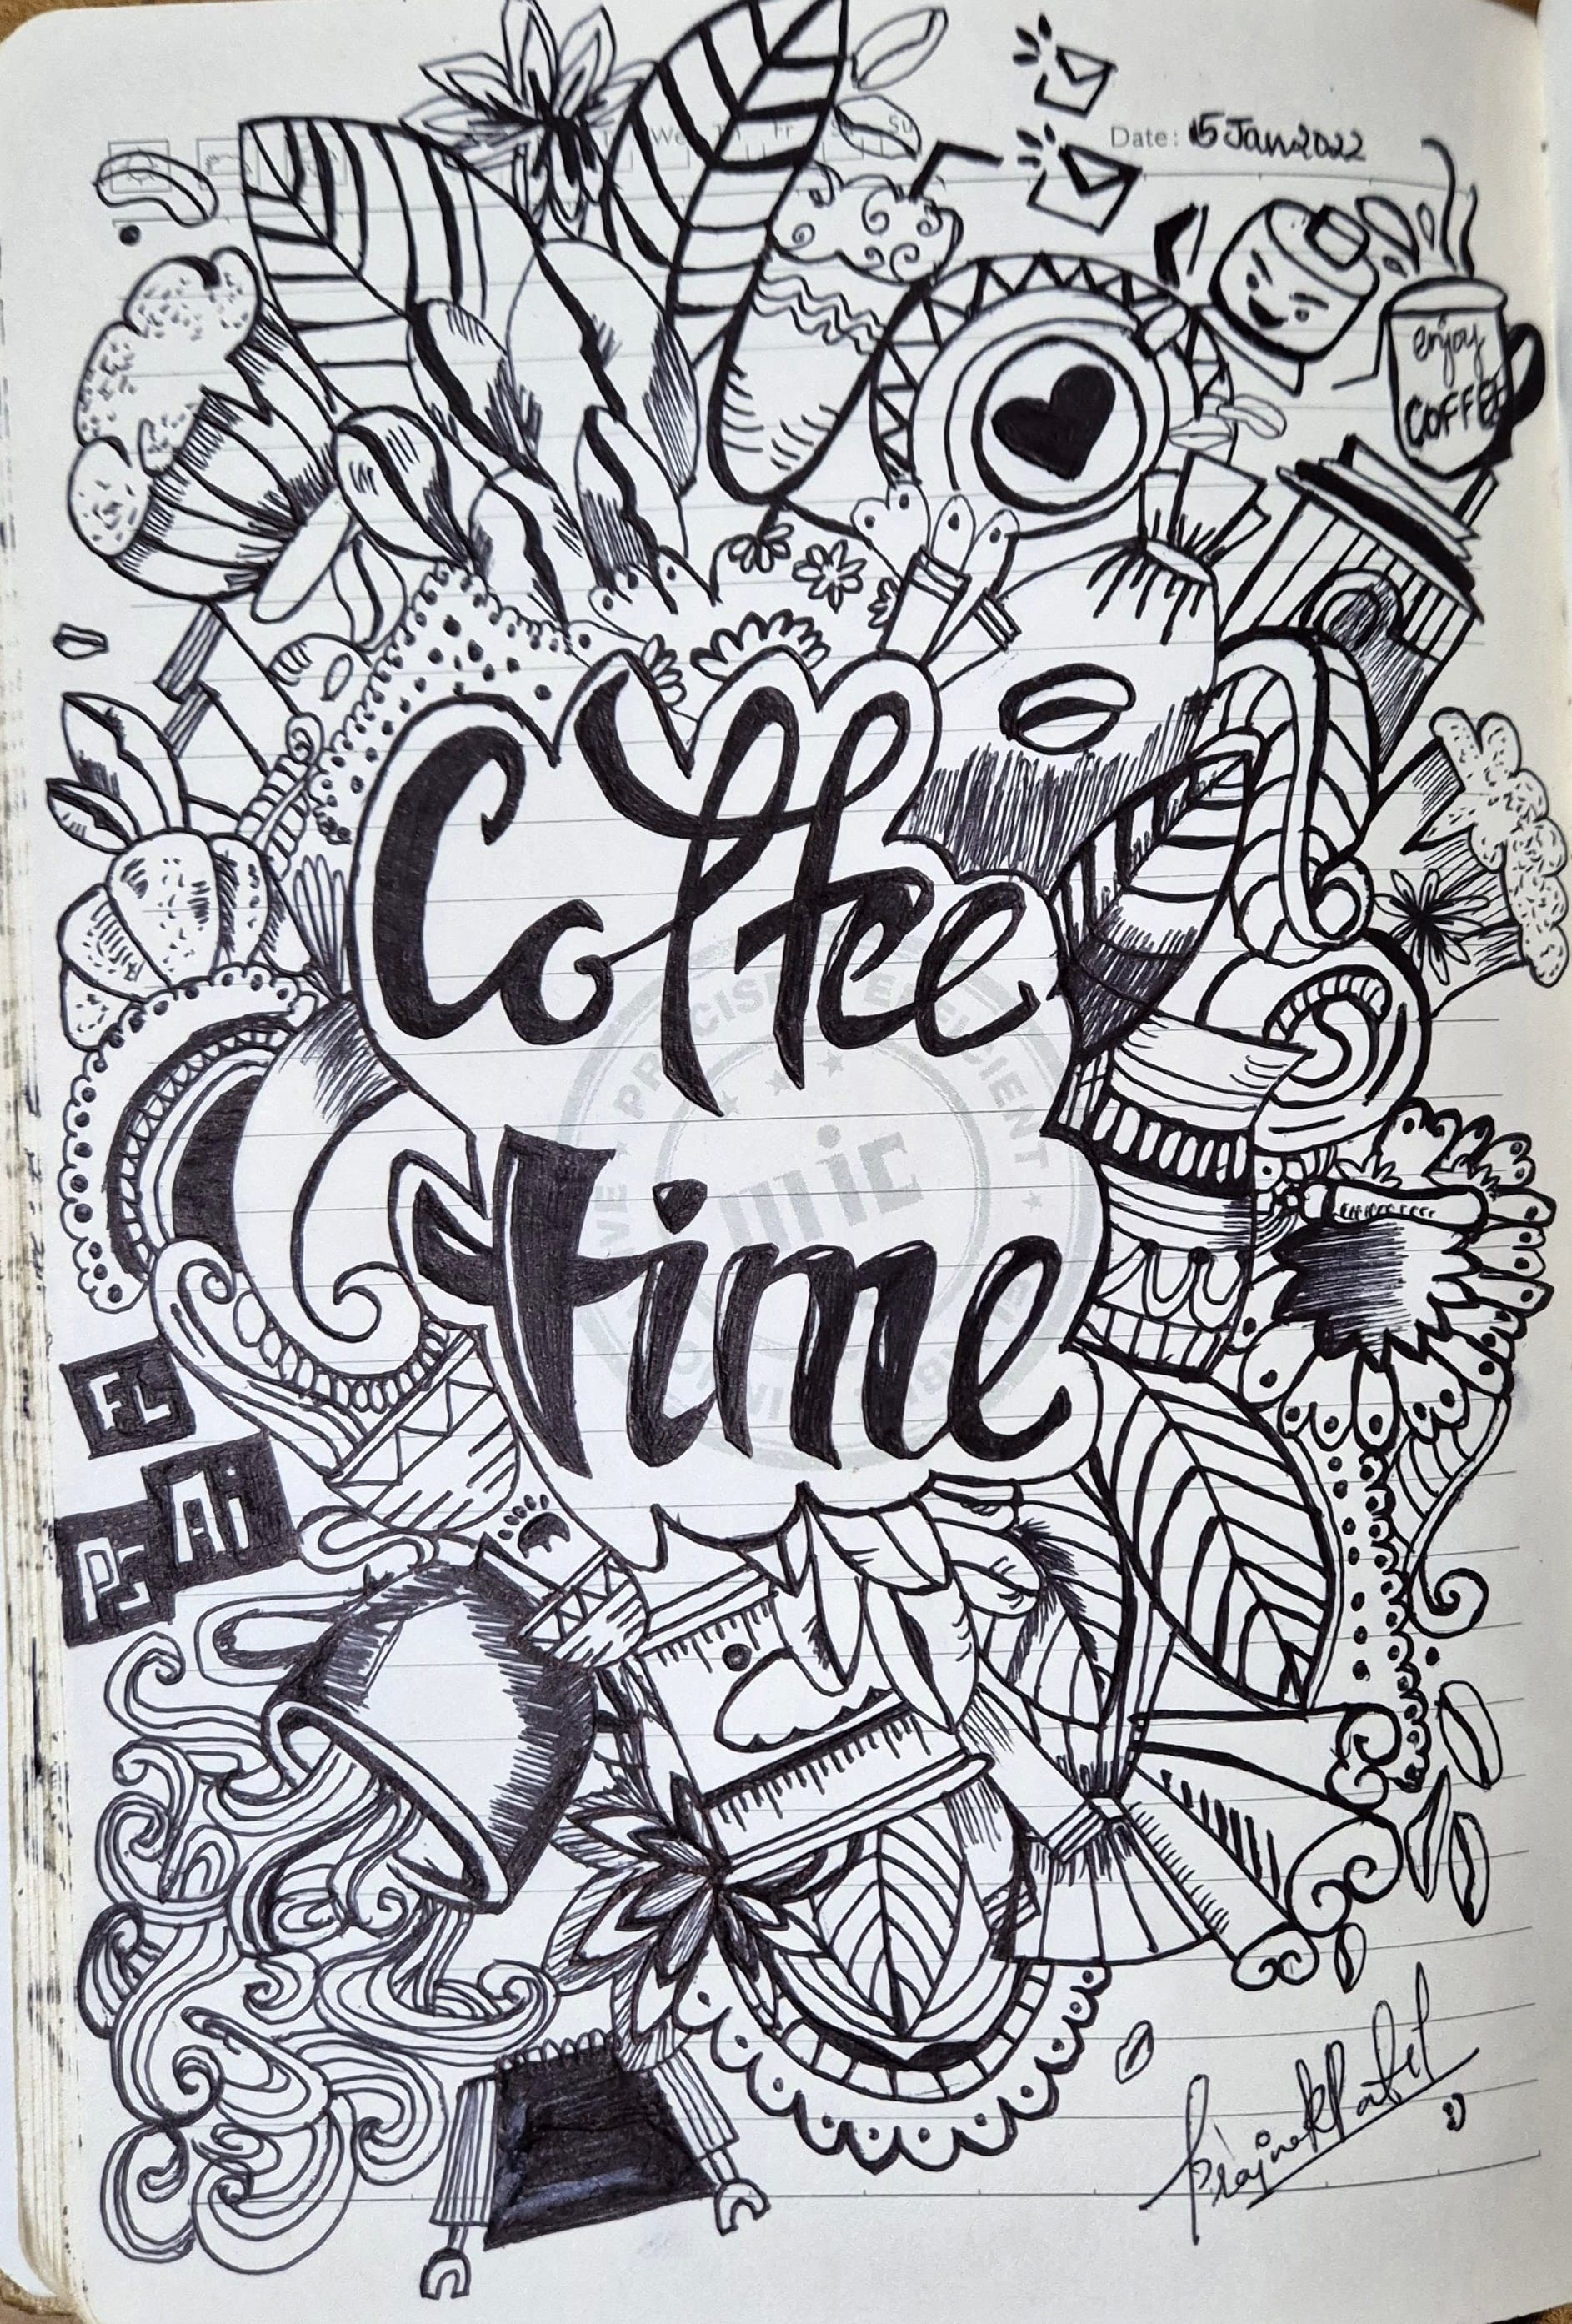 We Th Fr Sa Su
Date: 15 Jan 2022
enjoy
COFFEE
Coffee
time
PRECISE EFFICIENT
mic
FL
Ai
PS